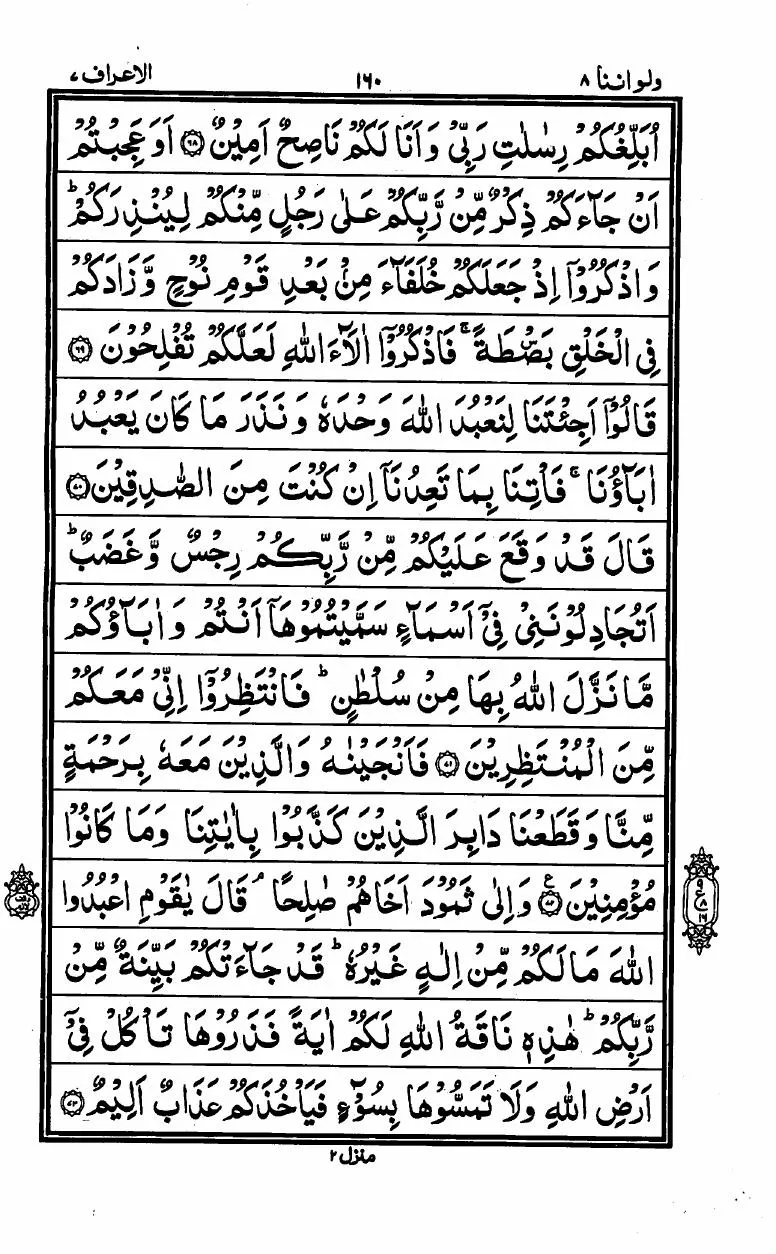 ولواننا ۸ ۱۶۰ الاعراف ۷
اُبَلِّغُكُمْ رِسٰلٰتِ رَبِّيْ وَاَنَا لَكُمْ نَاصِحٌ اَمِيْنٌ ۶۸ اَوَعَجِبْتُمْ
اَنْ جَآءَكُمْ ذِكْرٌ مِّنْ رَّبِّكُمْ عَلٰى رَجُلٍ مِّنْكُمْ لِيُنْذِرَكُمْ ؕ
وَاذْكُرُوْۤا اِذْ جَعَلَكُمْ خُلَفَآءَ مِنْۢ بَعْدِ قَوْمِ نُوْحٍ وَّزَادَكُمْ
فِي الْخَلْقِ بَصْۜطَةً ۚ فَاذْكُرُوْۤا اٰلَآءَ اللّٰهِ لَعَلَّكُمْ تُفْلِحُوْنَ ۶۹
قَالُوْۤا اَجِئْتَنَا لِنَعْبُدَ اللّٰهَ وَحْدَهٗ وَنَذَرَ مَا كَانَ يَعْبُدُ
اٰبَآؤُنَا ۚ فَاْتِنَا بِمَا تَعِدُنَاۤ اِنْ كُنْتَ مِنَ الصّٰدِقِيْنَ ۷۰
قَالَ قَدْ وَقَعَ عَلَيْكُمْ مِّنْ رَّبِّكُمْ رِجْسٌ وَّغَضَبٌ ؕ
اَتُجَادِلُوْنَنِيْ فِيْۤ اَسْمَآءٍ سَمَّيْتُمُوْهَاۤ اَنْتُمْ وَاٰبَآؤُكُمْ
مَّا نَزَّلَ اللّٰهُ بِهَا مِنْ سُلْطٰنٍ ؕ فَانْتَظِرُوْۤا اِنِّيْ مَعَكُمْ
مِّنَ الْمُنْتَظِرِيْنَ ۷۱ فَاَنْجَيْنٰهُ وَالَّذِيْنَ مَعَهٗ بِرَحْمَةٍ
مِّنَّا وَقَطَعْنَا دَابِرَ الَّذِيْنَ كَذَّبُوْا بِاٰيٰتِنَا وَمَا كَانُوْا
مُؤْمِنِيْنَ ۷۲ ع وَاِلٰى ثَمُوْدَ اَخَاهُمْ صٰلِحًا ۘ قَالَ يٰقَوْمِ اعْبُدُوا
ع ۹ ۸ ۱۶
اللّٰهَ مَا لَكُمْ مِّنْ اِلٰهٍ غَيْرُهٗ ؕ قَدْ جَآءَتْكُمْ بَيِّنَةٌ مِّنْ
رَّبِّكُمْ ؕ هٰذِهٖ نَاقَةُ اللّٰهِ لَكُمْ اٰيَةً فَذَرُوْهَا تَاْكُلْ فِيْۤ
اَرْضِ اللّٰهِ وَلَا تَمَسُّوْهَا بِسُوْٓءٍ فَيَاْخُذَكُمْ عَذَابٌ اَلِيْمٌ ۷۳
منزل ۲